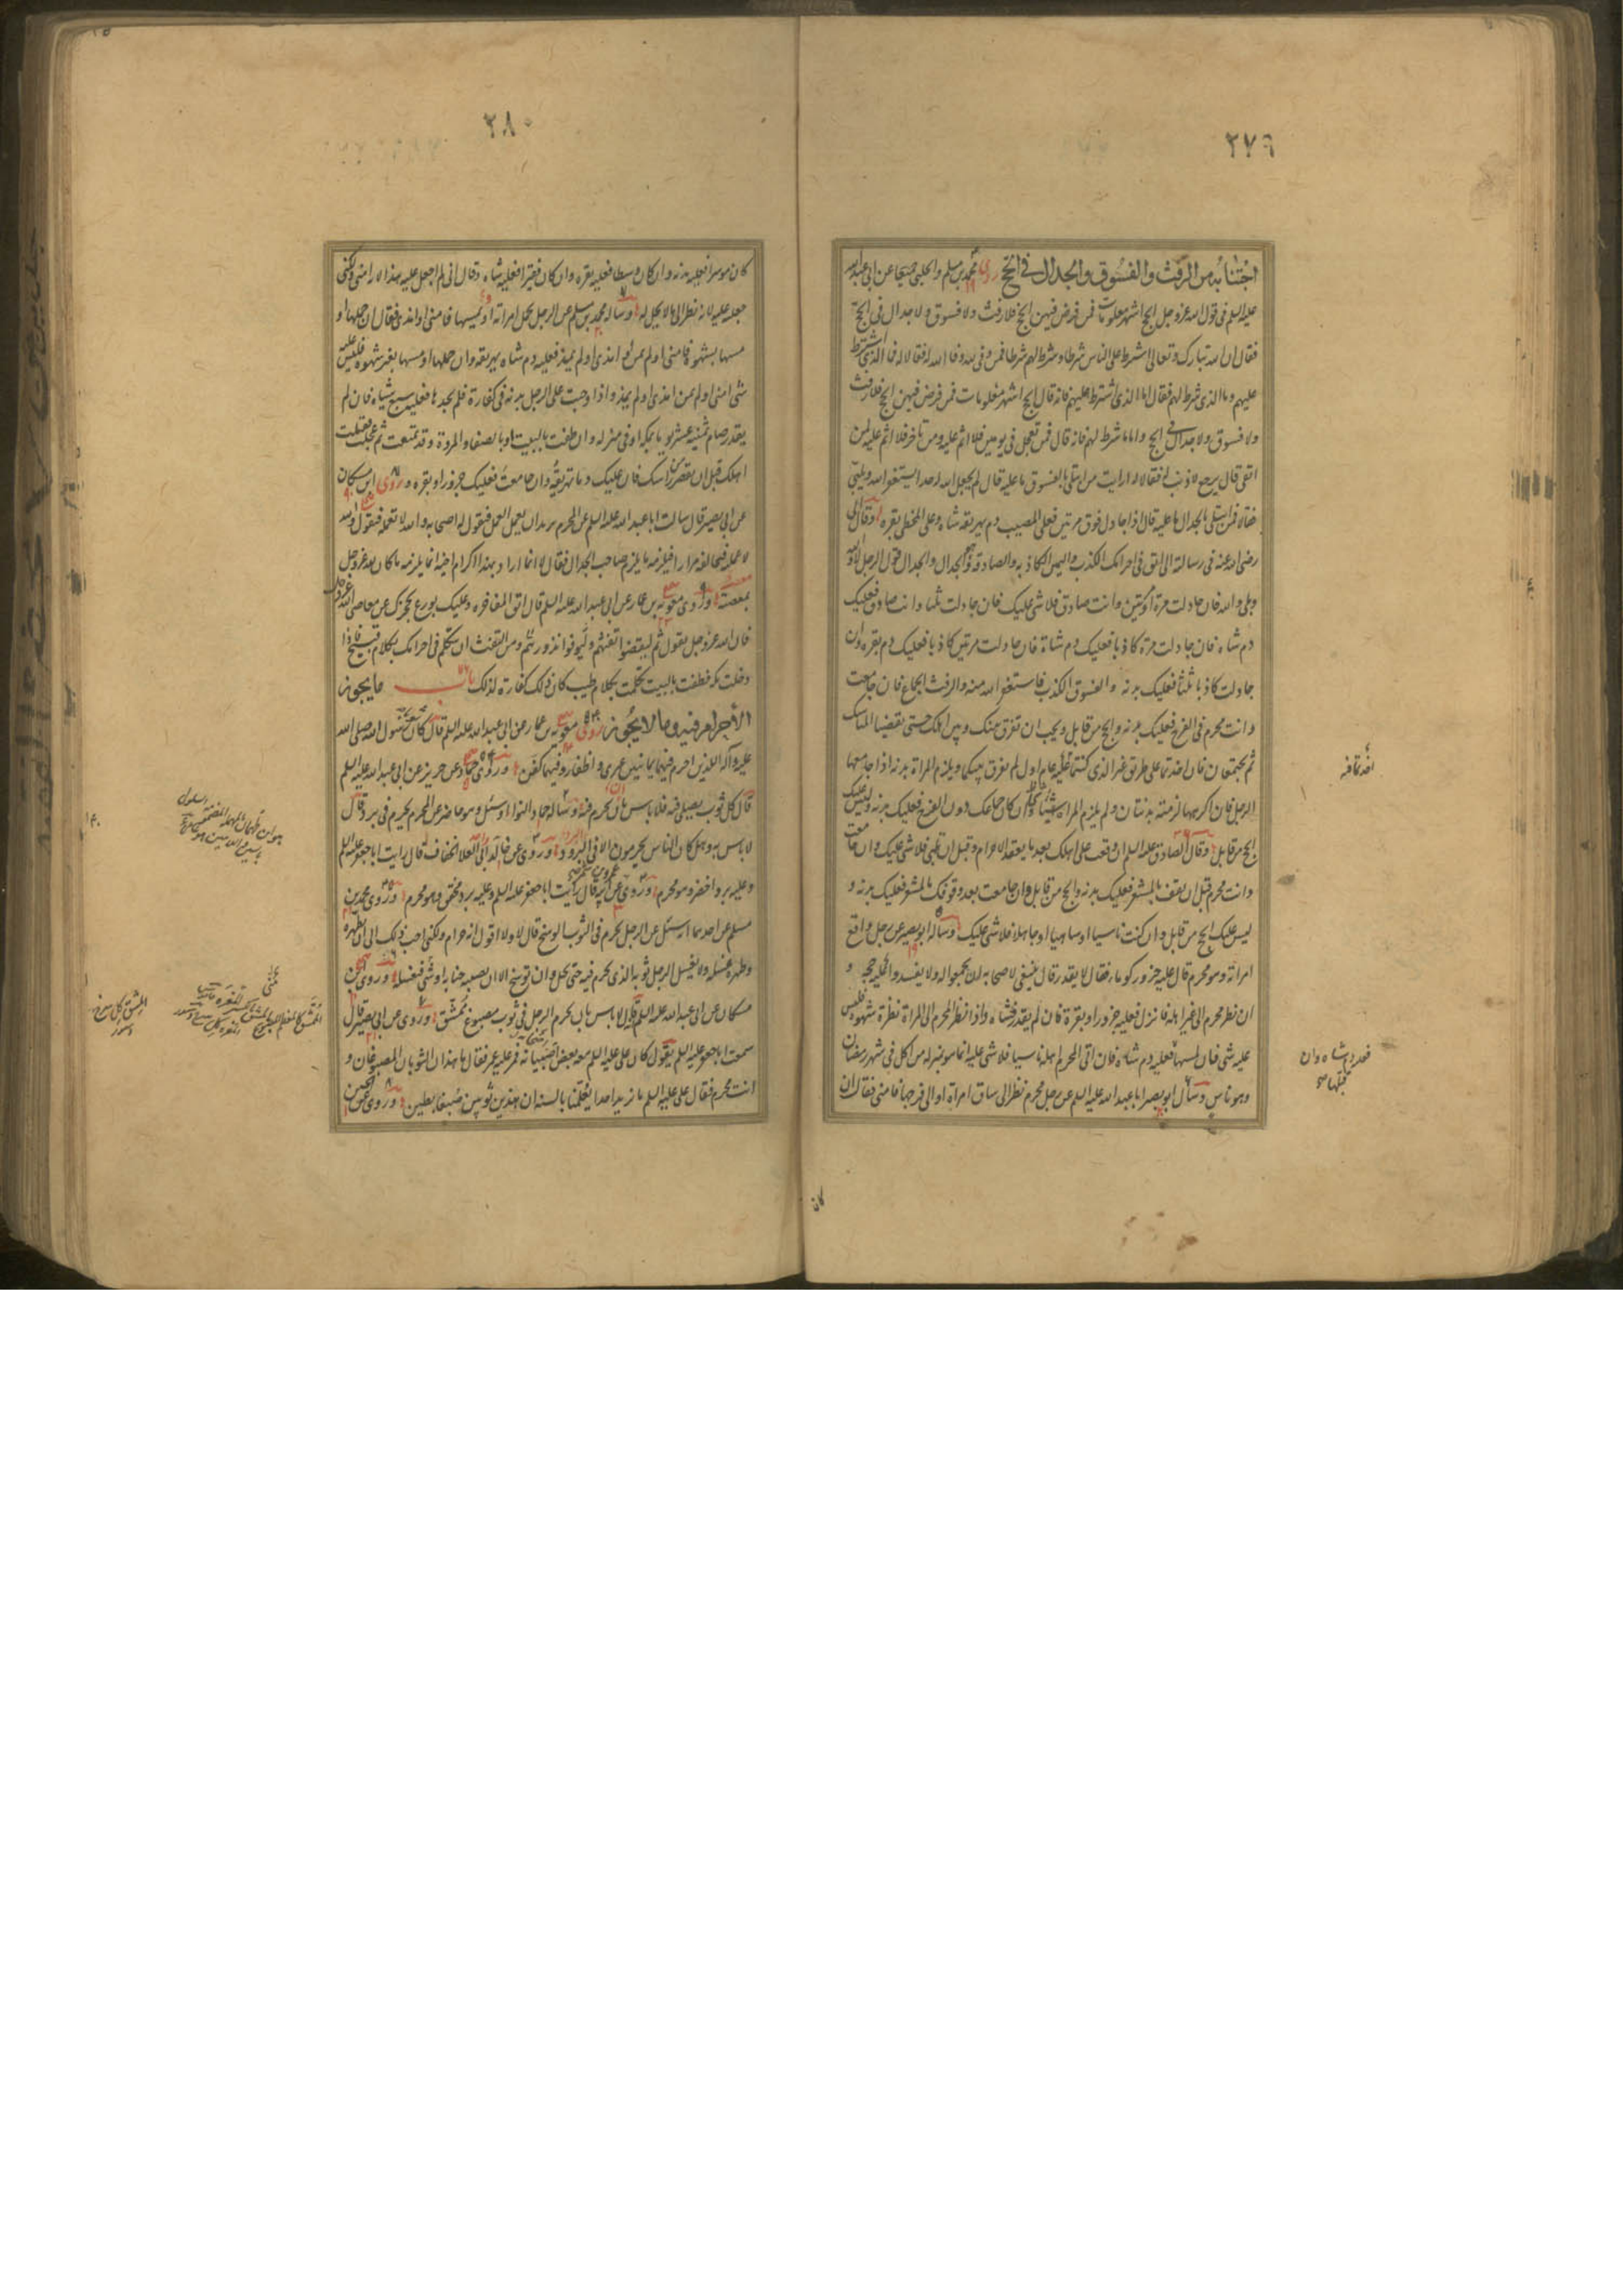 ٢٧٩
اجتنابه من الرفث والفسوق والجدال في الحج روى محمد بن مسلم والحلبي جميعا عن ابي عبد الله
عليه السلم في قول الله عز وجل الحج اشهر معلومات فمن فرض فيهن الحج فلا رفث ولا فسوق ولا جدال في الحج
فقال ان الله تبارك وتعالى اشترط على الناس شرطا وشرط لهم شرطا فمن وفى لله وفا الله له فقالا له فما الذي اشترط
عليهم وما الذي شرط لهم فقال اما الذي اشترط عليهم فانه قال الحج اشهر معلومات فمن فرض فيهن الحج فلا رفث
ولا فسوق ولا جدال في الحج واما ما شرط لهم فانه قال فمن تعجل في يومين فلا اثم عليه ومن تاخر فلا اثم عليه لمن
اتقى قال يرجع لا ذنب له فقالا له ارايت من ابتلى بالفسوق ما عليه قال لم يجعل الله له حدا يستغفر الله ويلبي
فقالا فمن ابتلى بالجدال ما عليه قال اذا جادل فوق مرتين فعلى المصيب دم يهريقه شاة وعلى المخطي بقرة وقال ابي
رضي الله عنه في رسالته الي اتق في احرامك الكذب واليمين الكاذبة والصادقة وهو الجدال والجدال قول الرجل لا والله
وبلى والله فان جادلت مرة او مرتين وانت صادق فلا شئ عليك فان جادلت ثلثا وانت صادق فعليك
دم شاة فان جادلت مرة كاذبا فعليك دم شاة فان جادلت مرتين كاذبا فعليك دم بقرة وان
جادلت كاذبا ثلثا فعليك بدنة والفسوق الكذب فاستغفر الله منه والرفث الجماع فان جامعت
وانت محرم في الفرج فعليك بدنة والحج من قابل ويجب ان تفرق بينك وبين اهلك حتى تقضيا المناسك
ثم تجتمعان فان اخذتما على طريق غير الذي كنتما اخذتما عليه عام اول لم يفرق بينكما ويلزم المراة بدنة اذا جامعها
الرجل فان اكرهها لزمته بدنتان ولم يلزم المراة شئ فان كان جماعك دون الفرج فعليك بدنة وليس عليك
الحج من قابل وقال الصادق عليه السلم ان وقعت على اهلك بعد ما تعقد الاحرام وقبل ان تلبي فلا شئ عليك وان جامعت
وانت محرم قبل ان تقف بالمشعر فعليك بدنة والحج من قابل وان جامعت بعد وقوفك بالمشعر فعليك بدنة و
ليس عليك الحج من قابل وان كنت ناسيا او ساهيا او جاهلا فلا شئ عليك وساله ابو بصير عن رجل واقع
امراته وهو محرم قال عليه جزور كوماء فقال لا يقدر قال ينبغي لاصحابه ان يجمعوا له ولا يفسدوا عليه حجه و
ان نظر محرم الى غير اهله فانزل فعليه جزور او بقرة فان لم يقدر فشاة واذا نظر المحرم الى المراة نظرة شهوة فليس
عليه شئ فان لمسها فعليه دم شاة فان اتى المحرم اهله ناسيا فلا شئ عليه انما هو بمنزلة من اكل في شهر رمضان
وهو ناس وسأل ابو بصير ابا عبد الله عليه السلم عن رجل محرم نظر الى ساق امراة او الى فرجها فامنى فقال ان
كان
فعليه دم شاة وان
قبلها صح
٢٨٠
كان موسرا فعليه بدنة وان كان وسطا فعليه بقرة وان كان فقيرا فعليه شاة وقال اني لم اجعل عليه هذا لانه امنى ولكني
جعلته عليه لانه نظر الى ما لا يحل له وساله محمد بن مسلم عن الرجل يحمل امراته او يمسها فامنى او امذى فقال ان حملها او
مسها بشهوة فامنى او لم يمن او امذى او لم يمذ فعليه دم شاة يهريقه وان حملها او مسها بغير شهوة فليس عليه
شئ امنى او لم يمن امذى او لم يمذ واذا وجبت على الرجل بدنة في كفارة فلم يجدها فعليه سبع شياه فان لم
يقدر صام ثمنية عشر يوما بمكة او في منزله وان طفت بالبيت وبالصفا والمروة وقد تمتعت ثم عجلت فقبلت
اهلك قبل ان تقصر من راسك فان عليك دما تهريقه وان جامعت فعليك جزور او بقرة وروى ابن مسكان
عن ابي بصير قال سالت ابا عبد الله عليه السلم عن المحرم يريد ان يعمل العمل فيقول له اصحابه والله لا تعمله فيقول والله
لاعملنه فيحالفه مرارا فيلزمه ما يلزم صاحب الجدال فقال لا انما اراد بهذا اكرام اخيه انما يلزمه ما كان لله عز وجل
معصية وروى معوية بن عمار عن ابي عبد الله عليه السلم قال اتق المفاخرة وعليك بورع يحجزك عن معاصي الله عز وجل
فان الله عز وجل يقول ثم ليقضوا تفثهم وليوفوا نذورهم ومن التفث ان تتكلم في احرامك بكلام قبيح فاذا
دخلت مكة فطفت بالبيت تكلمت بكلام طيب كان ذلك كفارة لذلك باب ما يجوز
الاحرام فيه وما لا يجوز روى معوية بن عمار عن ابي عبد الله عليه السلم قال كان ثوبا رسول الله صلى الله
عليه وآله اللذين احرم فيهما يمانيين عبري واظفار وفيهما كفن وروى حماد عن حريز عن ابي عبد الله عليه السلم
قال كل ثوب يصلى فيه فلا باس بان تحرم فيه وساله حماد النواء او سئل وهو حاضر عن المحرم يحرم في برد قال
لا باس به وهل كان الناس يحرمون الا في البرود وروى عن خالد ابي العلا الخفاف قال رايت ابا جعفر عليه السلم
وعليه برد اخضر وهو محرم وروى عمرو بن شمر عن ابيه قال رايت ابا جعفر عليه السلم وعليه برد مخفف وهو محرم وروى محمد بن
مسلم عن احدهما انه سئل عن الرجل يحرم في الثوب الوسخ قال لا ولا اقول انه حرام ولكني احب ذلك الي ان يطهره
وطهره غسله ولا يغسل الرجل ثوبه الذي يحرم فيه حتى يحل وان توسخ الا ان تصيبه جنابة او شئ فيغسله وروى ابن
مسكان عن ابي عبد الله عليه السلم قال لا باس بان يحرم الرجل في ثوب مصبوغ بمشق وروى عن ابي بصير قال
سمعت ابا جعفر عليه السلم يقول كان علي عليه السلم معه بعض صبيانه فمر عليه عمر فقال ما هذان الثوبان المصبوغان و
انت محرم فقال علي عليه السلم ما نريد احدا يعلمنا بالسنة ان هذين ثوبين صبغا بطين وروى عن الحسين